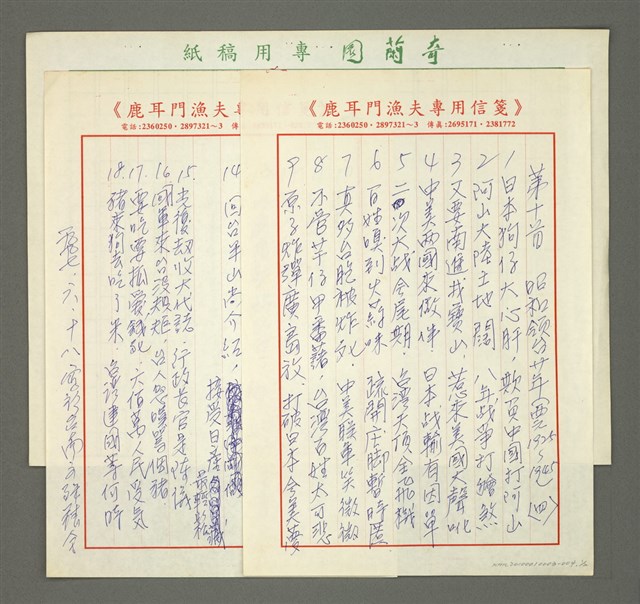 奇蘭園專用稿紙
《鹿耳門漁夫專用信箋》
電話:2360250・2897321～3 傳真:2695171・2381772
第十首 昭和領台廿年 西元1925～1945(四)
1 日本狗仔大心肝，欺負中國打阿山
2 阿山大陸土地闊 八年战爭打繪煞
3 又要南進找寶山，惹來美國大聲吼
4 中美兩國來做伴 日本战輸有因單
5 二次大战会尾期，台灣大頂全飛機
6 百姓嗅到火葯味 疏開庄脚暫時匿
7 真妙台胞被炸死 中美联軍笑微微
8 不管芋仔甲番藷，台灣百姓太可悲
9 原子炸彈廣島放，打破日本
《鹿耳門漁夫專
電話:2360250・2897321～3 傳
14 回台半山尚介紹，
接受日產
最輕鬆
15. 光復劫收大代誌．行政長官是陳儀
16 國軍來台沒規矩，台人怨嘆罵個豬
17. 要吃要擱愛錢死 六佰萬人民受氣
18. 豬來狗去吃了米．台語建國等何時